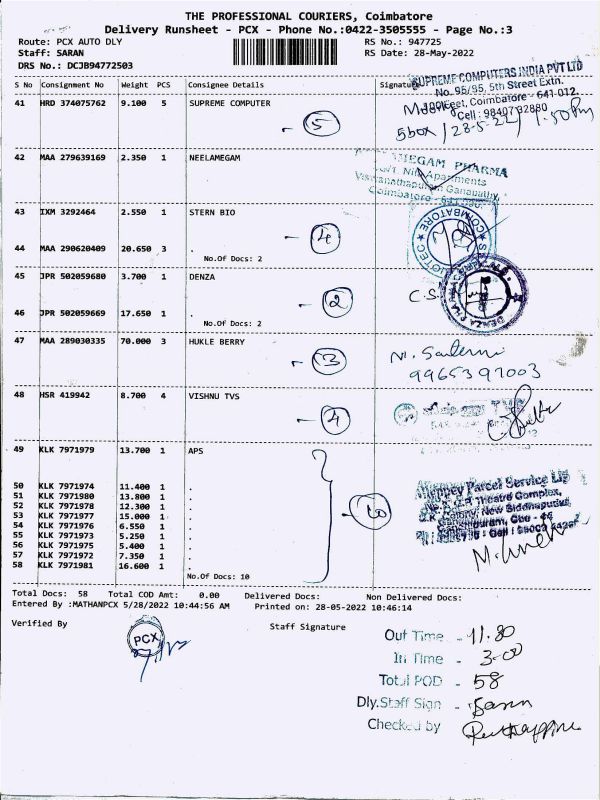 THE PROFESSIONAL COURIERS, Coimbatore
Delivery Runsheet - PCX - Phone No.:0422-3505555 - Page No.:3
Route: PCX AUTO DLY
RS No.: 947725
Staff: SARAN
RS Date: 28-May-2022
DRS No.: DCJB94772503
S No Consignment No Weight PCS Consignee Details Signature
SUPREME COMPUTERS INDIA PVT LTD
No. 95/85, 5th Street Extn.
41 HRD 374075762 9.100 5 SUPREME COMPUTER
Coimbatore - 641 012.
Cell : 98407 32880
- 5
5box / 28-5-22 / 1.50 Pm
42 MAA 279639169 2.350 1 NEELAMEGAM
MEGAM PHARMA
Apartments
Ganapathy,
Coimbatore - 641
43 IXM 3292464 2.550 1 STERN BIO
COIMBATORE
- 4
44 MAA 290620409 20.650 3 .
No.Of Docs: 2
45 JPR 502059680 3.700 1 DENZA
DENZA
C.S
- 2
46 JPR 502059669 17.650 1 .
No.Of Docs: 2
47 MAA 289030335 70.000 3 HUKLE BERRY
- 3
9965397003
48 HSR 419942 8.700 4 VISHNU TVS
TVS
- 4
49 KLK 7971979 13.700 1 APS
50 KLK 7971974 11.400 1 .
51 KLK 7971980 13.800 1 .
52 KLK 7971978 12.300 1 .
53 KLK 7971977 15.000 1 .
54 KLK 7971976 6.550 1 .
55 KLK 7971973 5.250 1 .
56 KLK 7971975 5.400 1 .
57 KLK 7971972 7.350 1 .
58 KLK 7971981 16.600 1 .
- 10
Parcel Service Ltd
Theatre Complex,
New Siddhapudur,
No.Of Docs: 10
Total Docs: 58 Total COD Amt: 0.00 Delivered Docs: Non Delivered Docs:
Entered By :MATHANPCX 5/28/2022 10:44:56 AM Printed on: 28-05-2022 10:46:14
Verified By
Staff Signature
PCX
Out Time - 11.30
In Time - 3-00
Total POD - 58
Dly.Staff Sign - Saran
Checked by